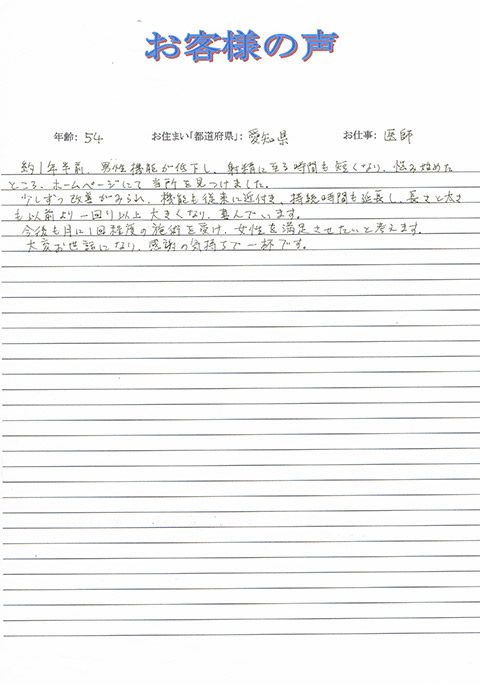 お客様の声
年齢: 54 お住まい「都道府県」: 愛知県 お仕事: 医師
約1年半前、男性機能が低下し、射精に至る時間も短くなり、悩み始めた
ところ、ホームページにて当所を見つけました。
少しずつ改善がみられ、機能も従来に近付き、持続時間も延長し、長さと太さ
も以前より一回り以上大きくなり、喜んでいます。
今後も月に1回程度の施術を受け、女性を満足させたいと考えます。
大変お世話になり、感謝の気持ちで一杯です。